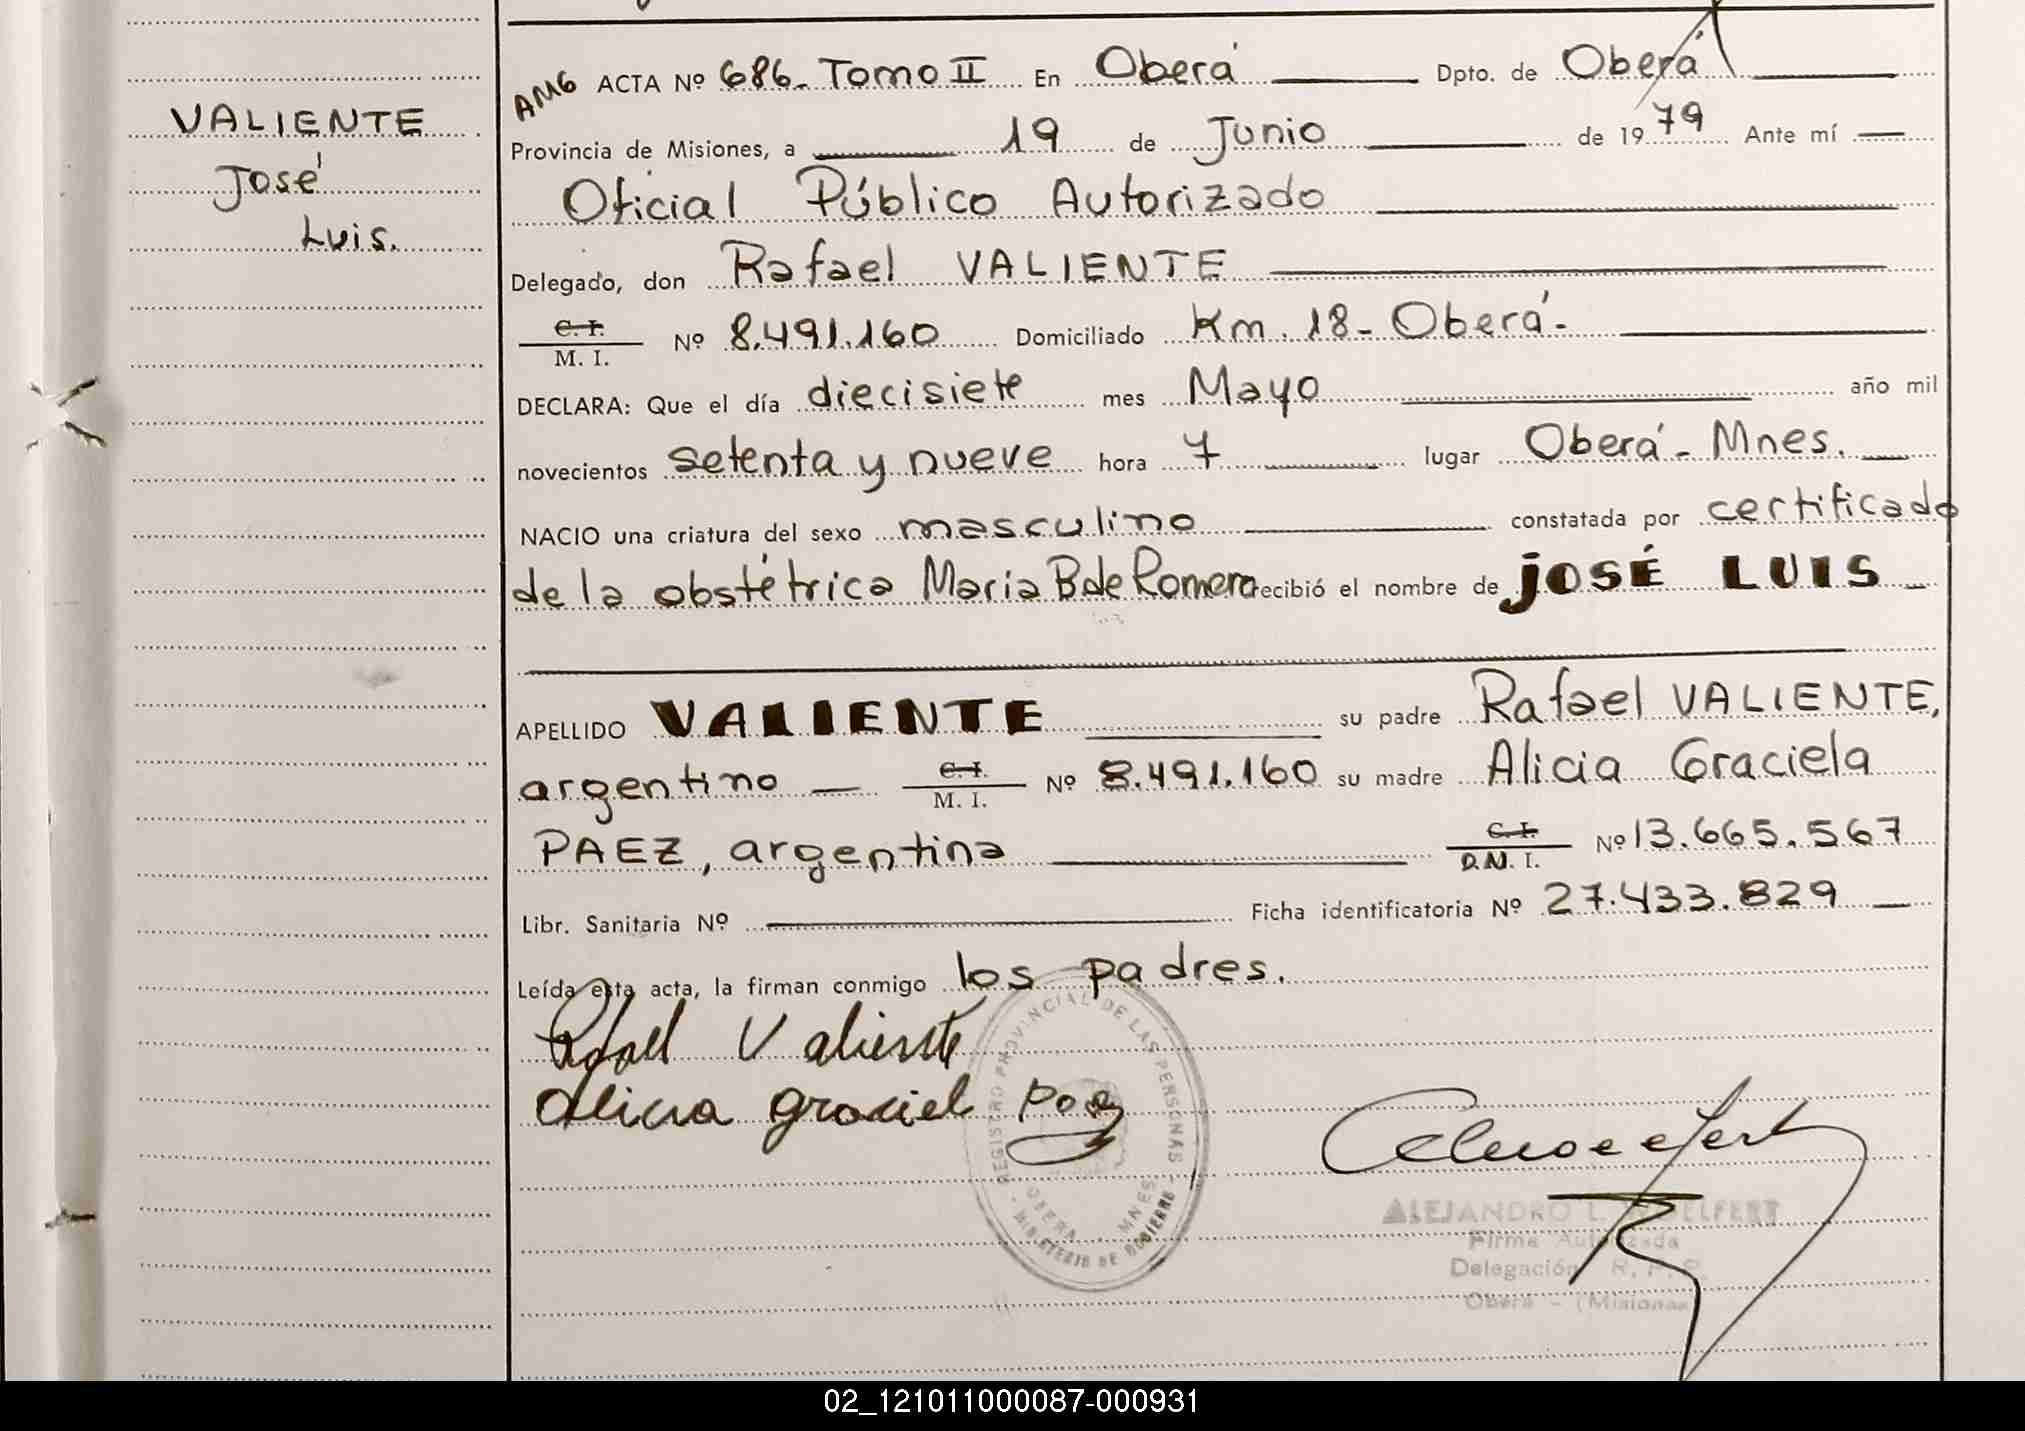 VALIENTE
José
Luis.
AMG ACTA Nº 686_ Tomo II En Oberá Dpto. de Oberá
Provincia de Misiones, a 19 de Junio de 1979 Ante mí
Oficial Público Autorizado
Delegado, don Rafael VALIENTE
C. I. / M. I. Nº 8.491.160 Domiciliado Km. 18_ Oberá-
DECLARA: Que el día diecisiete mes Mayo año mil
novecientos setenta y nueve hora 7 lugar Oberá_ Mnes.
NACIO una criatura del sexo masculino constatada por certificado
de la obstétrica María B de Romero recibió el nombre de JOSÉ LUIS
APELLIDO VALIENTE su padre Rafael VALIENTE,
argentino C. I. / M. I. Nº 8.491.160 su madre Alicia Graciela
PAEZ, argentina C. I. / D.N. I. Nº 13.665.567
Libr. Sanitaria Nº Ficha identificatoria Nº 27.433.829
Leída esta acta, la firman conmigo los padres.
Rafael Valiente
Alicia Graciel Paez
REGISTRO PROVINCIAL DE LAS PERSONAS
OBERA MNES.
MINISTERIO DE GOBIERNO
ALEJANDRO L. WOELFERT
Firma Autorizada
Delegación R. P. P.
Oberá - (Misiones)
02_121011000087-000931